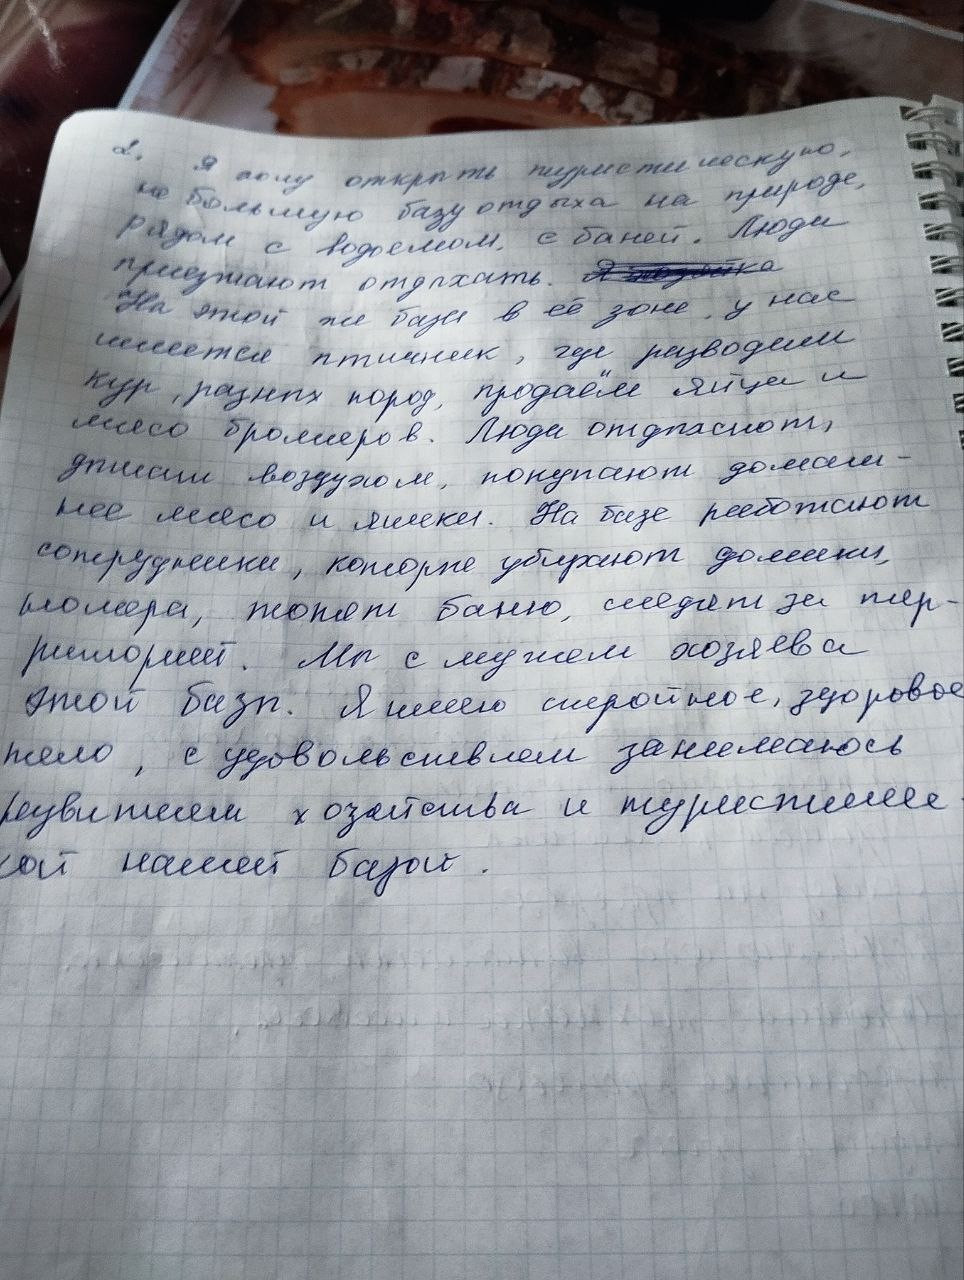 2. Я хочу открыть туристическую,
не большую базу отдыха на природе,
рядом с водоемом, с баней. Люди
приезжают отдыхать.
На этой же базы в её зоне, у нас
имеется птичник, где разводим
кур, разных пород, продаём яйца и
мясо бройлеров. Люди отдыхают,
дышат воздухом, покупают домаш-
нее мясо и яички. На базе работают
сотрудники, которые убирают домики,
номера, топят баню, следят за тер-
риторией. Мы с мужем хозяева
этой базы. Я имею стройное, здоровое
тело, с удовольствием занимаюсь
развитием хозяйства и туристичес-
кой нашей базой.